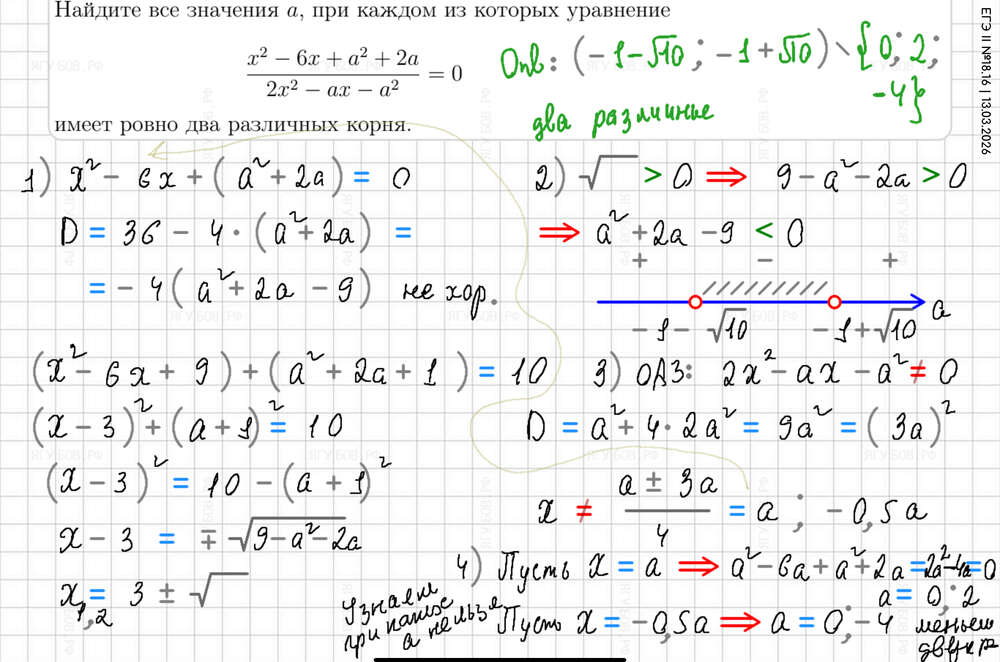 Найдите все значения a, при каждом из которых уравнение
x² − 6x + a² + 2a
2x² − ax − a²
= 0
имеет ровно два различных корня.
Отв: (−1−√10 ; −1+√10) \ {0; 2; −4}
два различные
ЕГЭ II №18.16 | 13.03.2026
1) x² − 6x + (a² + 2a) = 0
D = 36 − 4·(a² + 2a) =
= −4(a² + 2a − 9) не хор.
(x² − 6x + 9) + (a² + 2a + 1) = 10
(x − 3)² + (a + 1)² = 10
(x − 3)² = 10 − (a + 1)²
x − 3 = ∓ √9−a²−2a
x₁,₂ = 3 ± √
2) √ > 0 ⇒ 9 − a² − 2a > 0
⇒ a² + 2a − 9 < 0
+ − +
−1−√10 −1+√10 a
3) ОДЗ: 2x² − ax − a² ≠ 0
D = a² + 4·2a² = 9a² = (3a)²
x ≠ a ± 3a / 4 = a ; −0,5a
4) Пусть x = a ⇒ a² − 6a + a² + 2a = 2a² − 4a = 0
a = 0; 2
Узнаем
при каких
a нельзя
Пусть x = −0,5a ⇒ a = 0; −4
меньше
двух